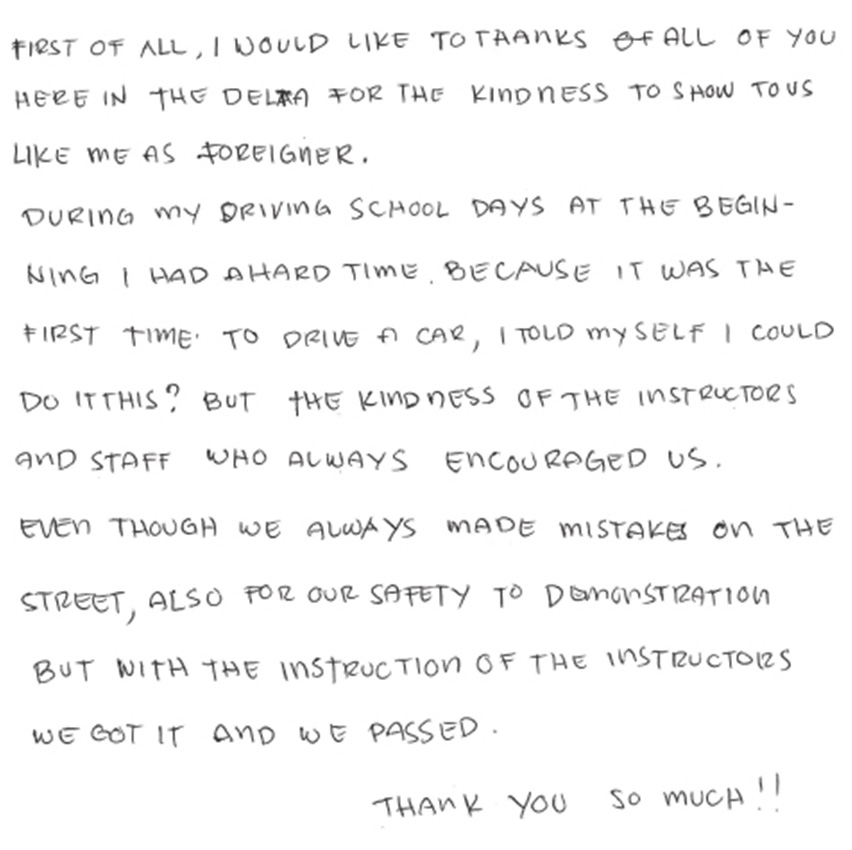 FIRST OF ALL, I WOULD LIKE TO THANKS OF ALL OF YOU
HERE IN THE DELTA FOR THE KINDNESS TO SHOW TO US
LIKE ME AS FOREIGNER.
DURING MY DRIVING SCHOOL DAYS AT THE BEGIN-
NING I HAD A HARD TIME. BECAUSE IT WAS THE
FIRST TIME. TO DRIVE A CAR, I TOLD MYSELF I COULD
DO IT THIS? BUT THE KINDNESS OF THE INSTRUCTORS
AND STAFF WHO ALWAYS ENCOURAGED US.
EVEN THOUGH WE ALWAYS MADE MISTAKES ON THE
STREET, ALSO FOR OUR SAFETY TO DEMONSTRATION
BUT WITH THE INSTRUCTION OF THE INSTRUCTORS
WE GOT IT AND WE PASSED.
THANK YOU SO MUCH!!